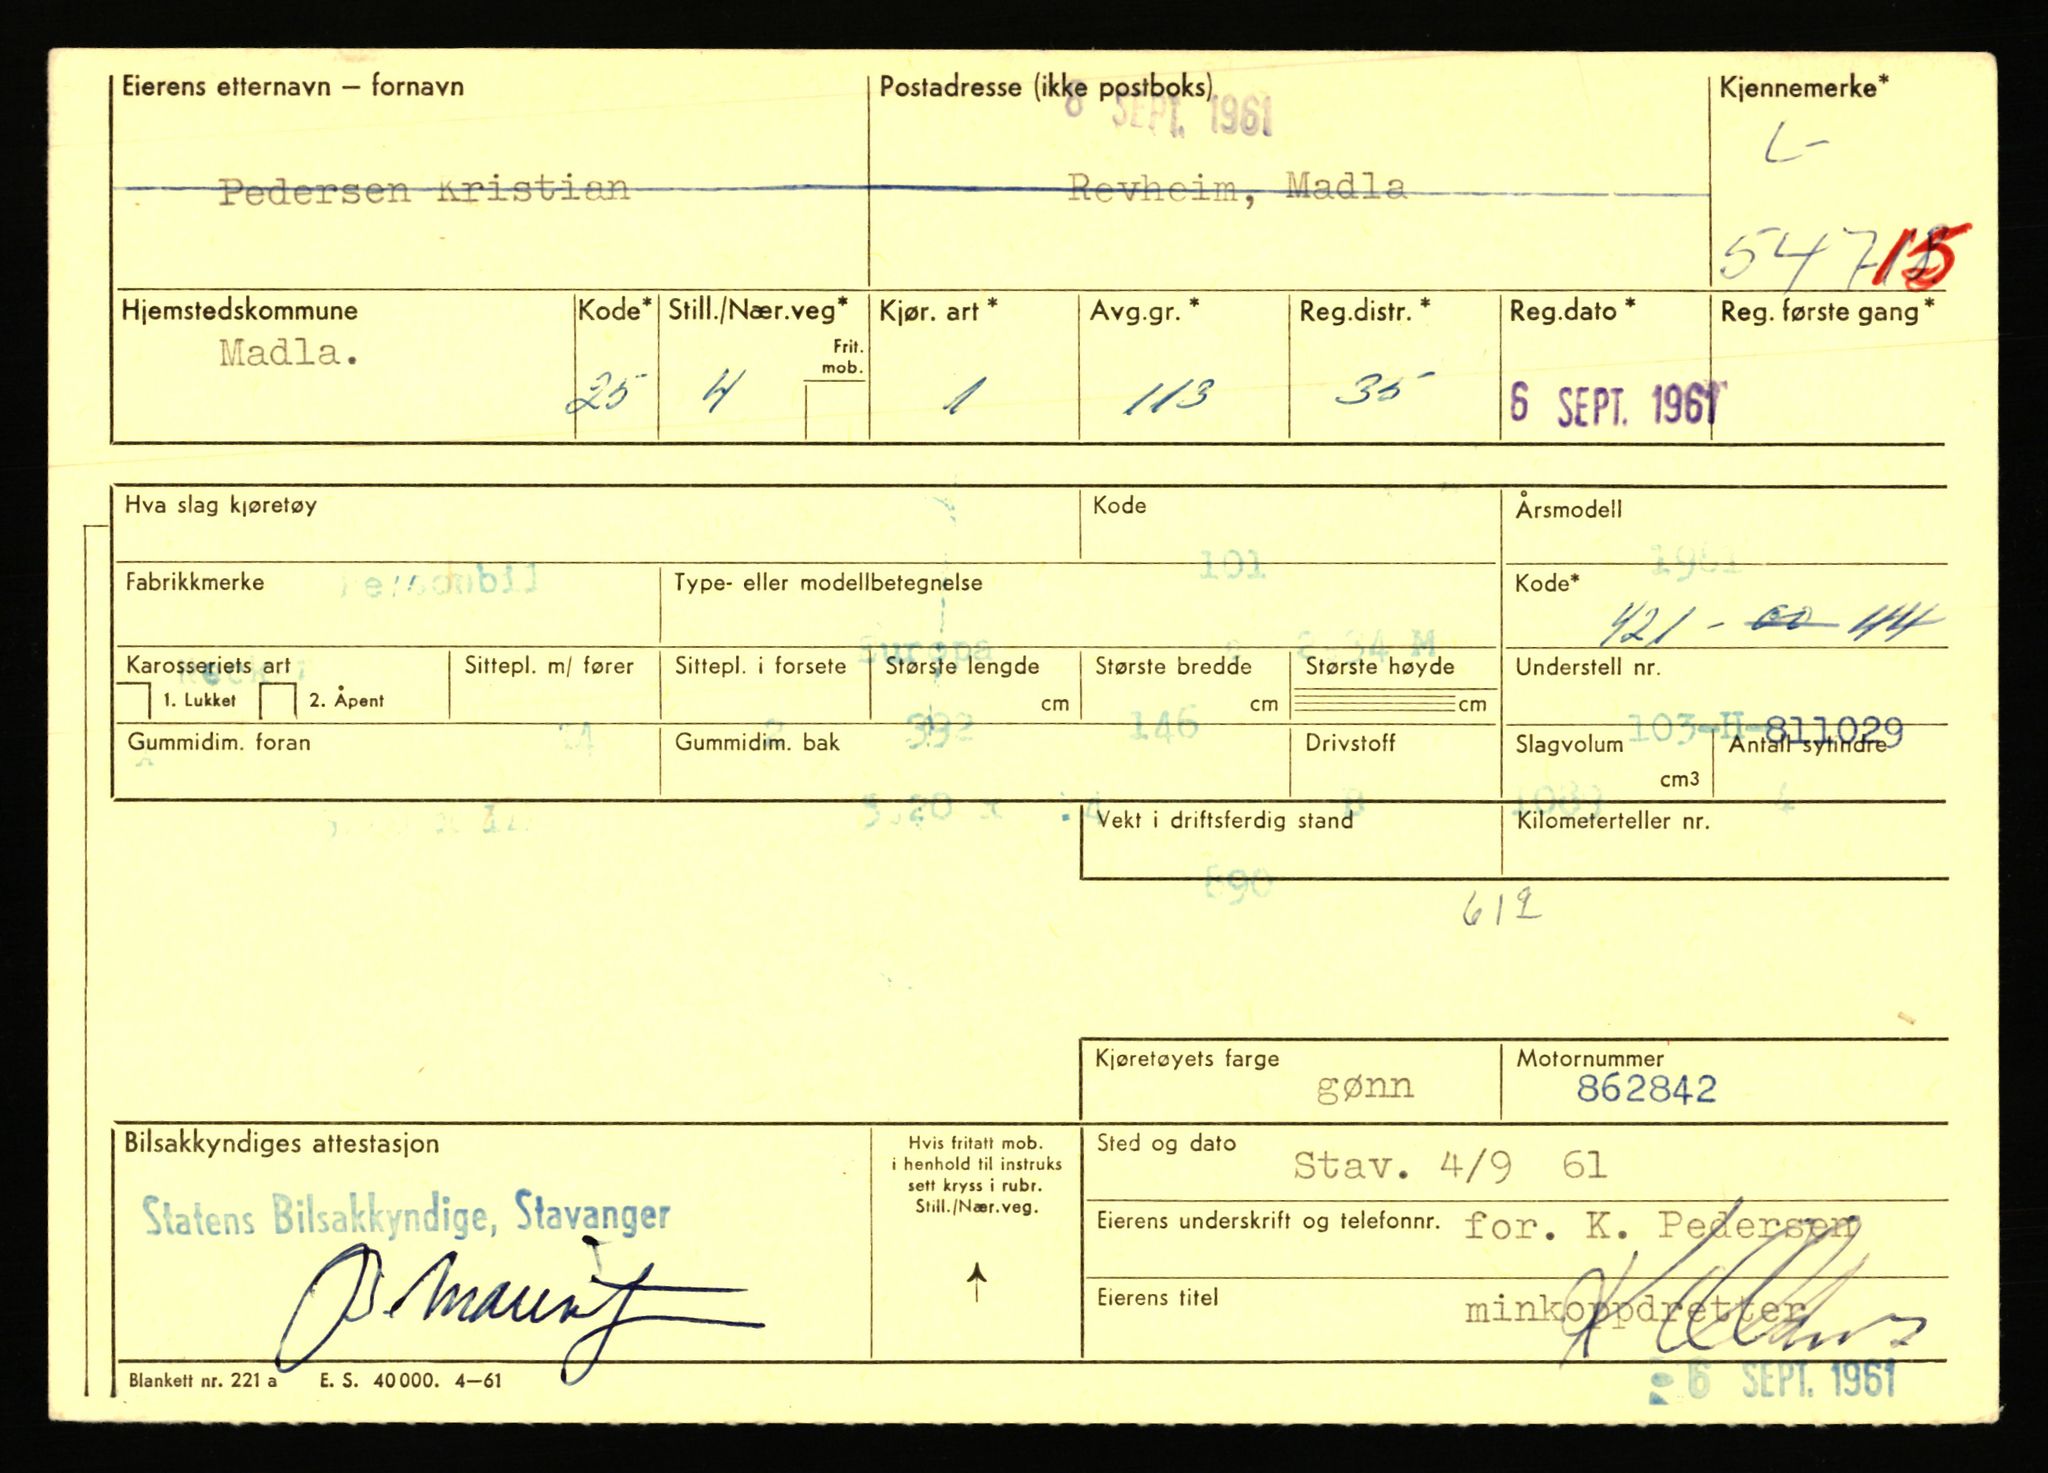 Eierens etternavn – fornavn
Postadresse (ikke postboks)
Kjennemerke*
8 SEPT. 1961
L-
Pedersen Kristian
Revheim, Madla
547 15
Hjemstedskommune
Kode*
Still./Nær.veg*
Kjør. art *
Avg.gr. *
Reg.distr. *
Reg.dato *
Reg. første gang*
Frit.
mob.
Madla.
25
4
1
113
35
6 SEPT. 1961
Hva slag kjøretøy
Kode
Årsmodell
Personbil
101
1961
Fabrikkmerke
Type- eller modellbetegnelse
Kode*
421 - 00 44
Europa
34 M
Karosseriets art
Sittepl. m/ fører
Sittepl. i forsete
Største lengde
Største bredde
Største høyde
Understell nr.
1. Lukket
2. Åpent
cm
cm
cm
2
392
146
103-H-811029
Gummidim. foran
Gummidim. bak
Drivstoff
Slagvolum
Antall sylindre
cm3
5.20 x 14
B
4
Vekt i driftsferdig stand
Kilometerteller nr.
890
612
Kjøretøyets farge
Motornummer
gønn
862842
Bilsakkyndiges attestasjon
Hvis fritatt mob.
i henhold til instruks
sett kryss i rubr.
Still./Nær.veg.
Sted og dato
Stav. 4/9 61
Statens Bilsakkyndige, Stavanger
Eierens underskrift og telefonnr.
for. K. Pedersen
Eierens titel
minkoppdretter
Blankett nr. 221 a
E. S. 40 000. 4–61
6 SEPT. 1961